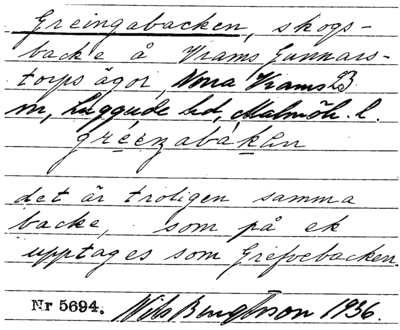 Greingabacken, skogs-
backe å Vrams Gunnars-
torps ägor, Norra Vrams
sn, Luggude hd, Malmöh. l.
det är troligen samma
backe, som på ek
upptages som Grefvebacken.
Nr 5694. Nils Bengtsson 1936.